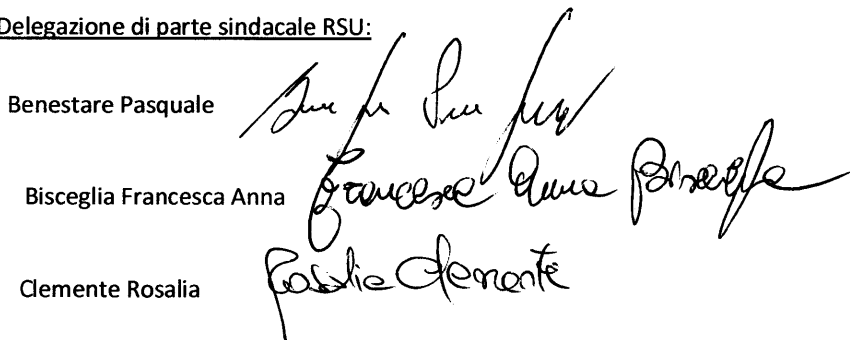 Delegazione di parte sindacale RSU:
Benestare Pasquale
Bisceglia Francesca Anna Francesca Anna Bisceglia
Clemente Rosalia Rosalia Clemente